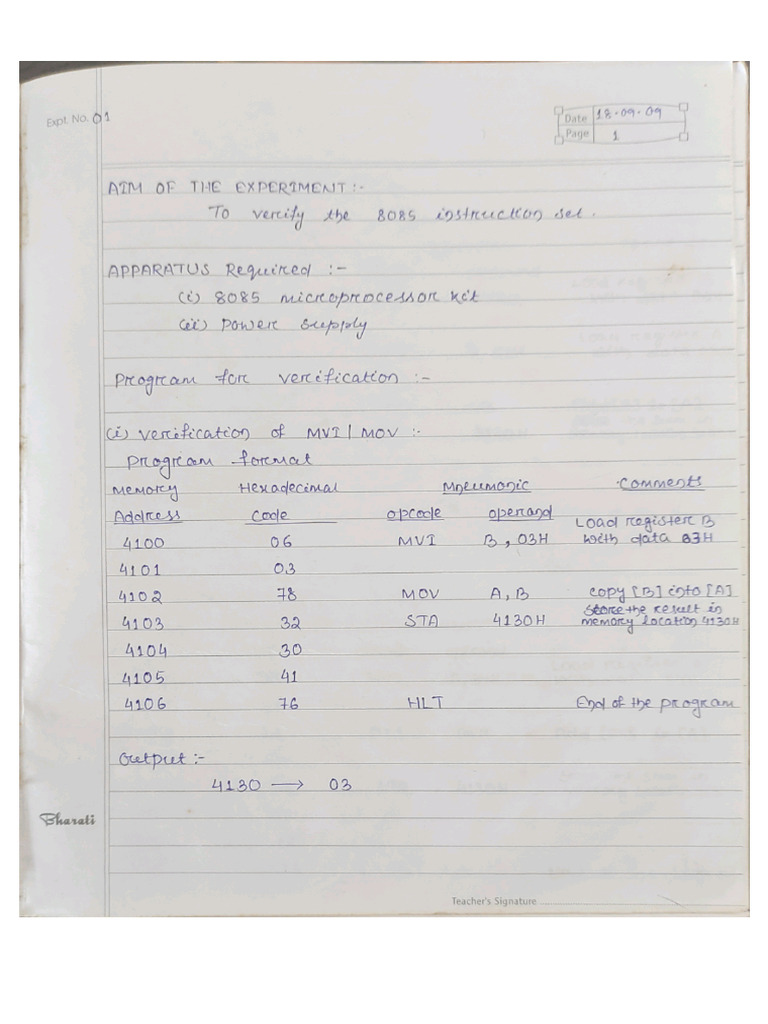 Expt. No. 01
Date 18.09.09
Page 1
AIM OF THE EXPERIMENT :-
To verify the 8085 instruction set.
APPARATUS Required :-
(i) 8085 microprocessor kit
(ii) Power supply
Program for verification :-
(i) verification of MVI | MOV :-
Program format
Memory Hexadecimal Mneumonic Comments
Address Code opcode operand
4100 06 MVI B, 03H Load register B with data 03H
4101 03
4102 78 MOV A, B copy [B] into [A]
4103 32 STA 4130H store the result in memory location 4130H
4104 30
4105 41
4106 76 HLT End of the program
Output :-
4130 → 03
Bharati
Teacher's Signature